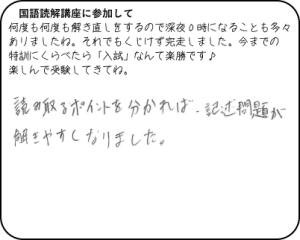 国語読解講座に参加して
何度も何度も解き直しをするので深夜0時になることも多々
ありましたね。それでもくじけず完走しました。今までの
特訓にくらべたら「入試」なんて楽勝です♪
楽しんで受験してきてね。
読み取るポイントを分かれば、記述問題が
解きやすくなりました。